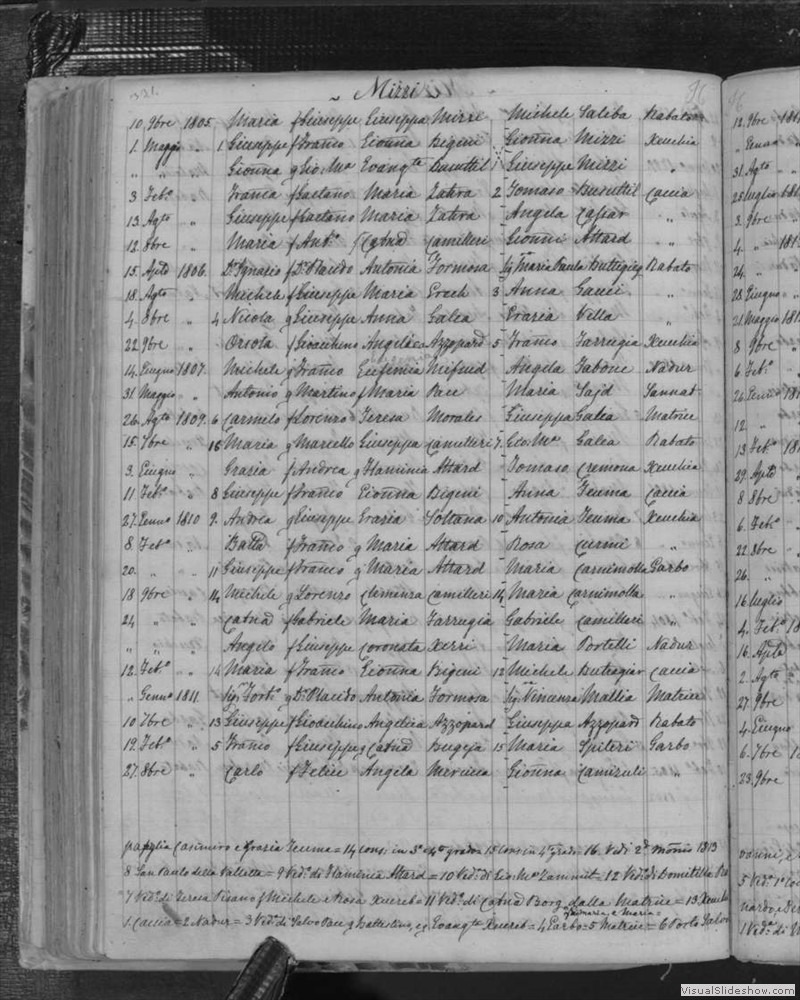 331.
Mizzi
10. 9bre 1805. Maria f Giuseppe Giuseppa Mizzi Michele Saliba Rabato
1. Maggio " 1 Giuseppe f Franco Gioñna Bigeni Gioñna Mizzi Xeuchia
" " " Gioñna g Gio. Ma Evangta Busuttil 1 Giuseppe Mizzi "
3 Febo " Franca f Gaetano Maria Zativa 2 Tomaso Busuttil Caccia
13. Agto " Giuseppe f Gaetano Maria Zativa Angela "
12. 8bre " Maria f Anto Catña Camilleri Gioñni Attard "
15. Aplo 1806. Dr Ignazio f Dr Placido Antonia Formosa Sig Maria Paula Buttigieg Rabato
18. Agto " Michele f Giuseppe Maria Grech 3 Anna Gauci "
4. 8bre " 4 Nicola g Giuseppe Anna Galea Grazia Vella "
22 9bre " Orsola f Gioacchino Angelica Azzopard 5 Franco Farrugia Xeuchia
14. Giugno 1807. Michele g Franco Eufemia Mifsud Angela Nadur
31 Maggio " Antonio g Martino f Maria Pace Maria Sajd Sannat
26. Agto 1809. 6 Carmelo f Lorenzo Teresa Morales Giuseppa Galea Matrice
15. 7bre " 16 Maria g Marcello Giuseppa Camilleri 7. Gio: Ma Galea Rabato
3. Giugno " Grazia f Andrea g Flaminia Attard Tomaso Cremona Xeuchia
11 Febo " 8 Giuseppe f Franco Gioñna Bigeni Anna Teuma Caccia
27. Genno 1810 9. Andrea g Giuseppe Grazia Soltana 10 Antonia Teuma Xeuchia
8. Febo " Batta f Franco g Maria Attard Rosa Curmi "
20. " " 11 Giuseppe f Franco g Maria Attard Maria Carnimolla Garbo
18 9bre " 14 Michele g Lorenzo Clemenza Camilleri 14 Maria Carnimolla "
24 " " Catña f Gabriele Maria Farrugia Gabriele Camilleri "
" " " Angelo f Giuseppe Coronata Xerri Maria Portelli Nadur
12. Febo " 14 Maria f Franco Gioñna Bigeni 12 Michele Buttigieg Caccia
" Genno 1811. Sigr Fortо g Dr Placido Antonia Formosa Sig Vincenza Mallia Matrice
10 7bre " 13 Giuseppe f Gioacchino Angelica Azzopard Giuseppa Azzopard Rabato
19. Febo " 5 Franco f Giuseppe g Catña Bugeja 15 Maria Spiteri Garbo
27. 8bre " Carlo f Felice Angela Mercieca Gioñna Camizuli "
Casimiro e Grazia Teuma = 14 Cons: in 3o e 4to grado 15 Cons in 4to grado 16. Vedi 2do Mõnio 1813
8 San Paulo della Valletta = 9 Vedo. di Flaminia Attard = 10 Ved. di Gio: Ma Zammit = 12 Ved. di Domitilla
7 Vedo. di Teresa Pisano f Michele e Rosa Xuereb 11 Vedo. di Catña Borg dalla Matrice = 13
1. Caccia = 2 Nadur = 3 Ved. di Salvo Pace g Battistino, e g Evangta Xuereb = 4 Garbo = 5 Matrice = 6 Porto Salvo
12. 9bre
" Genno
31. Agto
25 luglio
3. 9bre
4. "
24. "
28 Giugno
21. Maggio
8 9bre
6 Febo
26. Genno
12. "
13 Febo
29. Aplo
8 8bre
6. Febo
22. 8bre
26. "
16 luglio
4. Febo
16. Aplo
2. Agto
27. 9bre
4. Giugno
6. 7bre
23. 9bre
VisualSlideshow.com